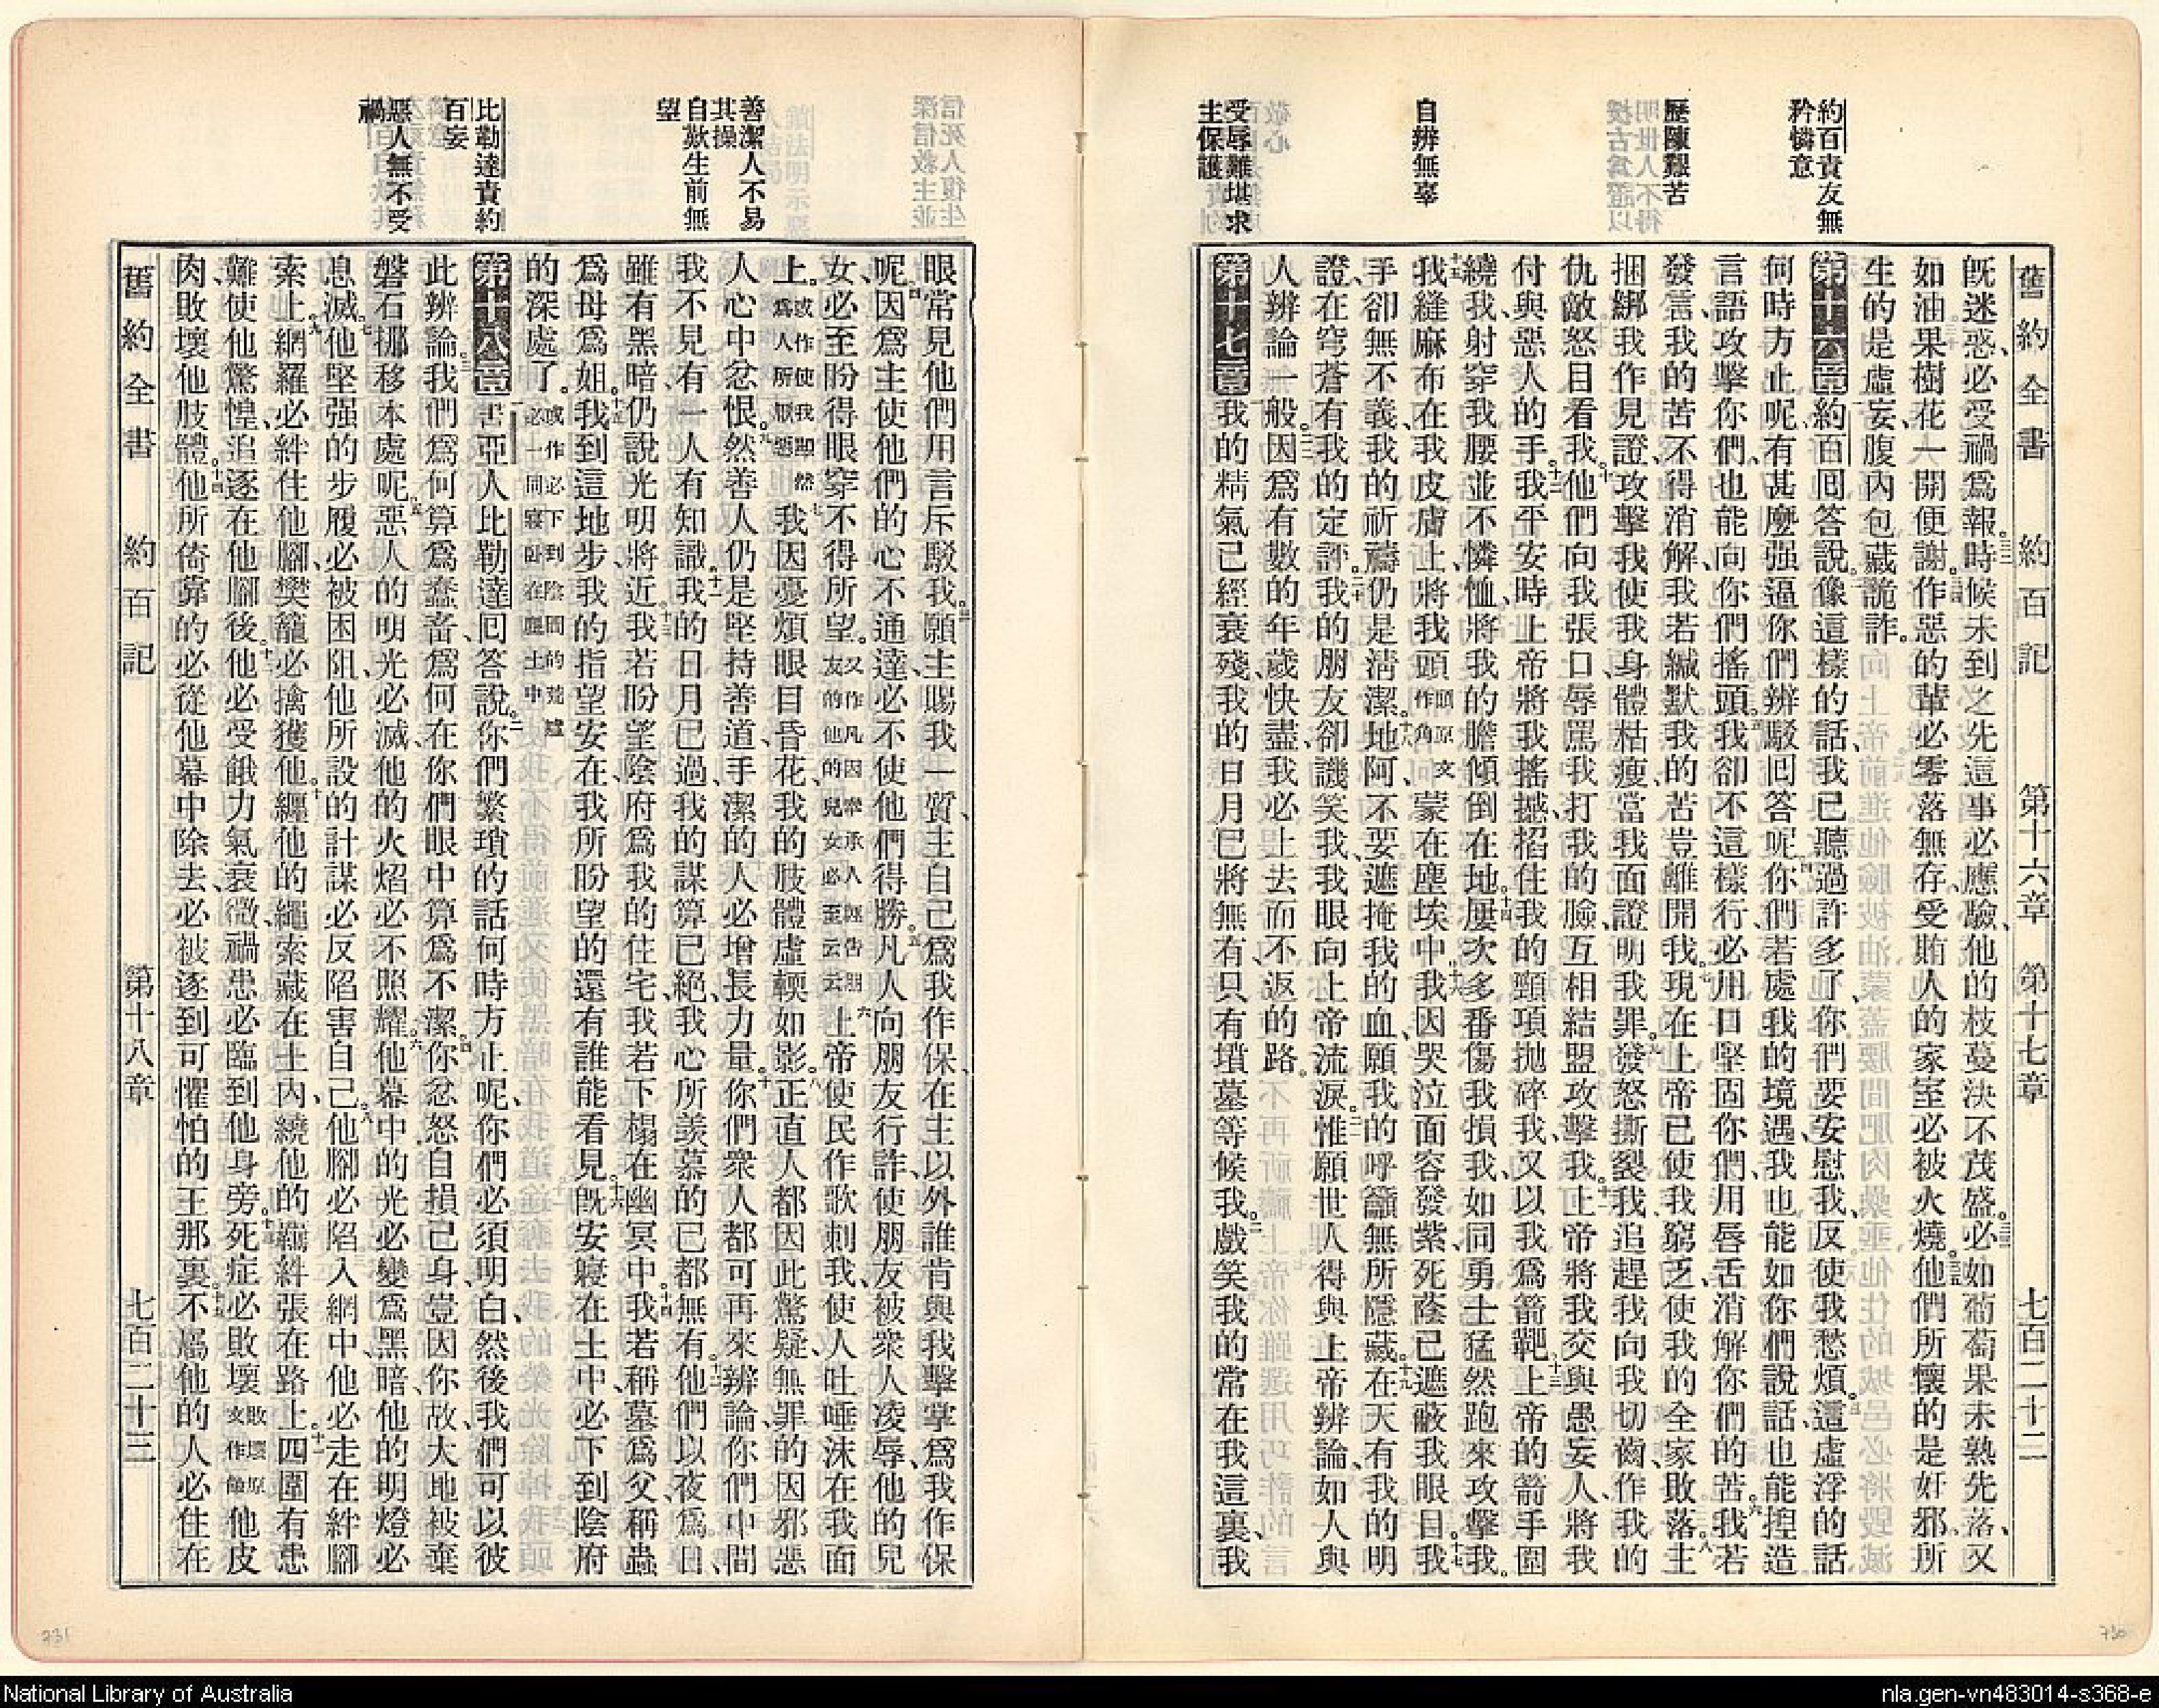 約百責友無
矜憐意
歷陳艱苦
自辨無辜
受辱難堪求
主保護
舊約全書 約百記 第十六章 第十七章 七百二十二
旣迷惑、必受禍爲報。三二時候未到之先這事必應驗、他的枝蔓決不茂盛。三三必如葡萄果未熟先落、又
如油果樹花一開便謝。三四作惡的輩必零落無存、受賄人的家室必被火燒。三五他們所懷的是奸邪、所
生的是虛妄、腹內包藏詭詐。
第十六章一約百回答說、二像這樣的話、我已聽過許多了、你們要安慰我、反使我愁煩。三這虛浮的話
何時方止呢、有甚麼强逼你們辨駁回答呢。四你們若處我的境遇、我也能如你們說話、也能揑造
言語攻擊你們、也能向你們搖頭。五我卻不這樣行、必用口堅固你們、用唇舌消解你們的苦。六我若
發言、我的苦不得消解、我若緘默、我的苦豈離開我。七現在上帝已使我窮乏、使我的全家敗落。八主
捆綁我作見證、攻擊我、使我身體枯瘦、當我面證明我罪。九發怒撕裂我、追趕我、向我切齒、作我的
仇敵、怒目看我。十他們向我張口、辱罵我、打我的臉、互相結盟攻擊我。十一上帝將我交與愚妄人、將我
付與惡人的手。十二我平安時、上帝將我搖撼、搯住我的頸項、抛碎我、又以我爲箭靶。十三上帝的箭手圍
繞我、射穿我腰、並不憐恤、將我的膽傾倒在地。十四屢次多番傷我損我、如同勇士猛然跑來攻擊我。
十五我縫麻布在我皮膚上、將我頭頭原文作角蒙在塵埃中。十六我因哭泣面容發紫、死蔭已遮蔽我眼目。十七我
手卻無不義、我的祈禱仍是淸潔。十八地阿、不要遮掩我的血、願我的呼籲無所隱藏。十九在天有我的明
證、在穹蒼有我的定評。二十我的朋友卻譏笑我、我眼向上帝流淚。二一惟願世人得與上帝辨論、如人與
人辨論一般。二二因爲有數的年歲快盡、我必上去而不返的路。
第十七章一我的精氣已經衰殘、我的日月已將無有、只有墳墓等候我。二戲笑我的常在我這裏、我
信死人復生並
深信救主
善潔人不易
其操
自歎生前無
望
比勒達責約
百妄
惡人無不受
禍
眼常見他們用言斥駁我。三願主賜我一質、主自己爲我作保、在主以外誰肯與我擊掌爲我作保
呢。四因爲主使他們的心不通達、必不使他們得勝。五凡人向朋友行詐、使朋友被衆人凌辱、他的兒
女必至盼得眼穿不得所望。又作凡因衆承人經告朋友的他的兒女必至云云六上帝使民作歌刺我、使人吐唾沫在我面
上。或作使我顯然爲人所厭惡七我因憂煩眼目昏花、我的肢體虛輭如影。八正直人都因此驚疑、無罪的因邪惡
人心中忿恨。九然善人仍是堅持善道、手潔的人必增長力量。十你們衆人都可再來辨論、你們中間
我不見有一人有知識。十一我的日月已過、我的謀算已絕、我心所羨慕的已都無有。十二他們以夜爲日、
雖有黑暗仍說光明將近。十三我若盼望陰府爲我的住宅、我若下榻在幽冥中。十四我若稱墓爲父、稱蟲
爲母爲姐。十五我到這地步、我的指望安在、我所盼望的還有誰能看見。十六旣安寢在土中、必下到陰府
的深處了。或作必下到陰間的荒墟必一同寢臥在塵土中
第十八章一書亞人比勒達回答說、二你們繁瑣的話何時方止呢、你們必須明白、然後我們可以彼
此辨論。三我們爲何算爲蠢畜、爲何在你們眼中算爲不潔。四你忿怒自損己身、豈因你故、大地被棄
磐石挪移本處呢。五惡人的明光必滅、他的火焰必不照耀。六他幕中的光必變爲黑暗、他的明燈必
息滅。七他堅强的步履必被困阻、他所設的計謀必反陷害自己。八他腳必陷入網中、他必走在絆腳
索上。九網羅必絆住他腳、樊籠必擒獲他。十纏他的繩索藏在土內、繞他的羈絆張在路上。十一四圍有患
難使他驚惶、追逐在他腳後。十二他必受餓力氣衰微、禍患必臨到他身旁。十三死症必敗壞敗壞原文作蝕他皮
肉、敗壞他肢體。十四他所倚靠的必從他幕中除去、必被逐到可懼怕的王那裏。十五不屬他的人必住在
舊約全書 約百記 第十八章 七百二十三
731
730
National Library of Australia
nla.gen-vn483014-s368-e